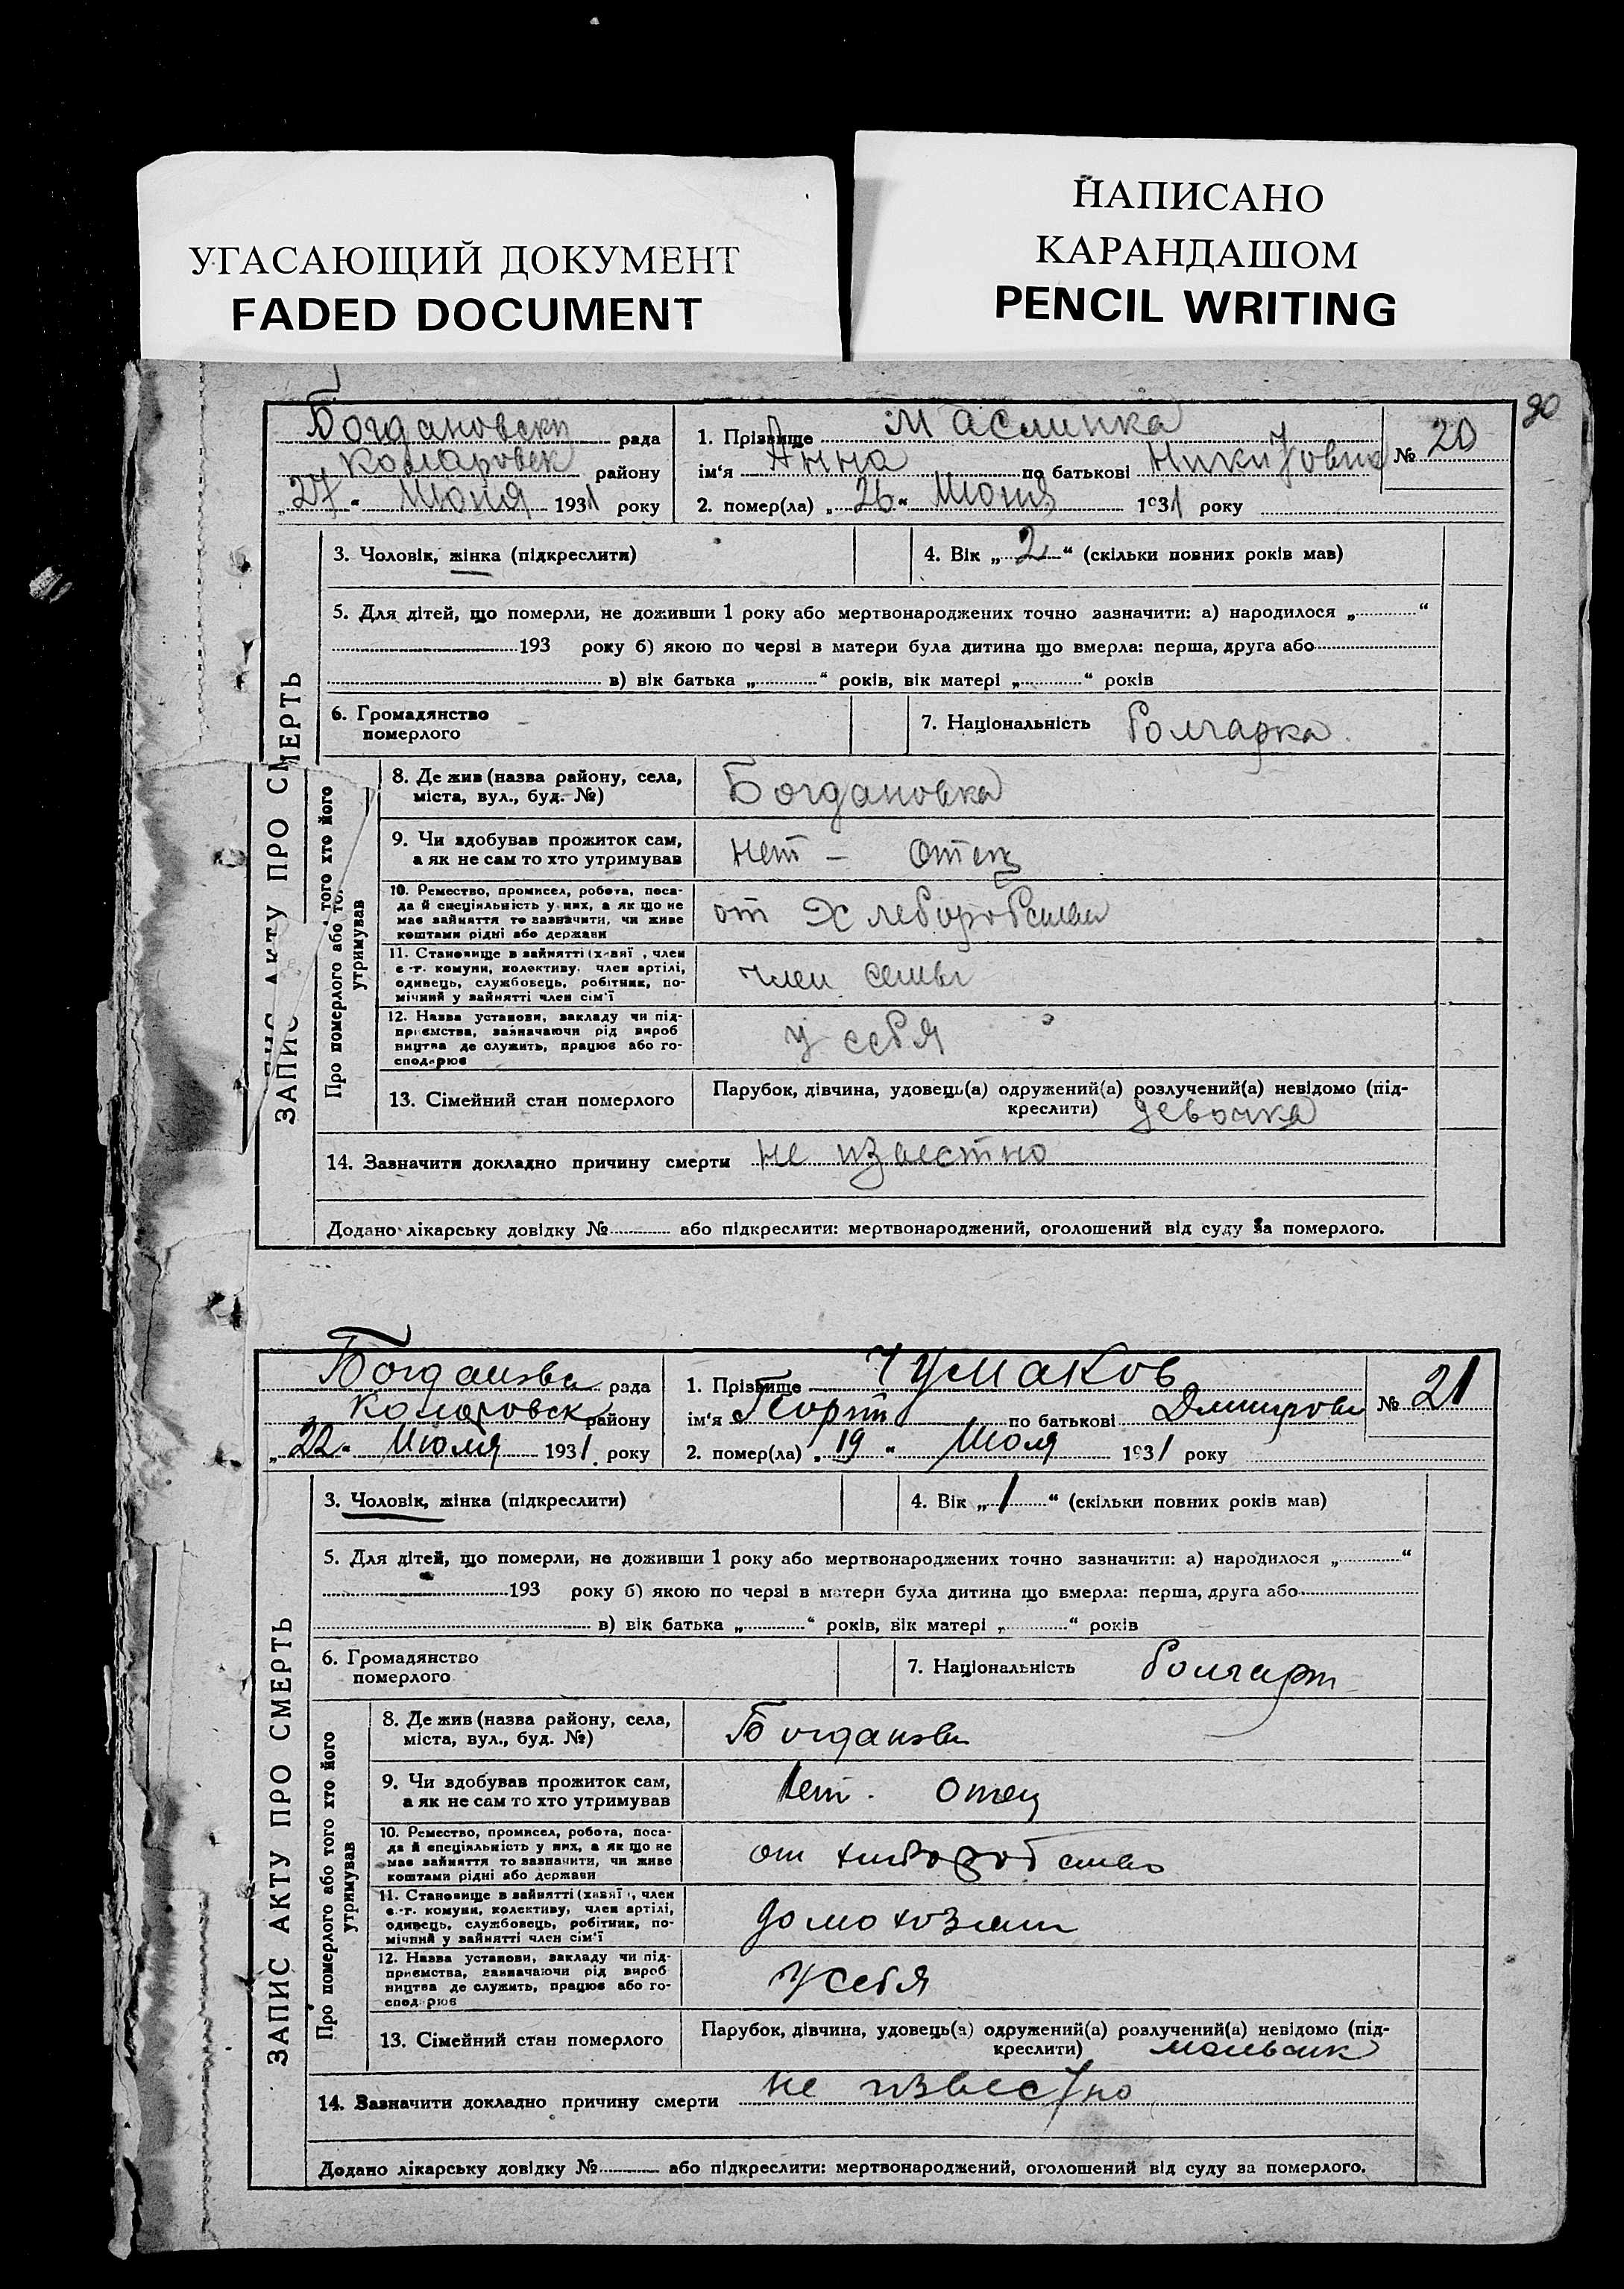 НАПИСАНО
КАРАНДАШОМ
PENCIL WRITING
УГАСАЮЩИЙ ДОКУМЕНТ
FADED DOCUMENT
90
Богдановск рада
Коларовск району
„27“ Июня 1931 року
1. Прізвище Маслинка
ім‘я Анна по батькові Никитовна
№ 20
2. помер(ла) „26“ Июня 1931 року
ЗАПИС АКТУ ПРО СМЕРТЬ
3. Чоловік, жінка (підкреслити)
4. Вік „2“ (скільки повних років мав)
5. Для дітей, що померли, не доживши 1 року або мертвонароджених точно зазначити: а) народилося „ “
193 року б) якою по черзі в матери була дитина що вмерла: перша, друга або
в) вік батька „ “ років, вік матері „ “ років
6. Громадянство померлого -
7. Національність болгарка
Про померлого або того хто його утримував
8. Де жив (назва району, села,
міста, вул., буд. №)
Богдановка
9. Чи здобував прожиток сам,
а як не сам то хто утримував
нет - отец
10. Ремество, промисел, робота, поса-
да й спеціяльність у них, а як що не
має зайняття то зазначити, чи живе
коштами рідні або держави
от Хлеборобства
11. Становище в зайнятті (хазяї, член
с.-г. комуни, колективу, член артілі,
одинець, службовець, робітник, по-
мічний у зайнятті член сім‘ї
член семьи
12. Назва установи, закладу чи під-
приємства, зазначаючи рід вироб
ництва де служить, працює або го-
сподарює
у себя
13. Сімейний стан померлого
Парубок, дівчина, удовець(а) одружений(а) розлучений(а) невідомо (під-
креслити) девочка
14. Зазначити докладно причину смерти не известно
Додано лікарську довідку № або підкреслити: мертвонароджений, оголошений від суду за померлого.
Богданов рада
Коларовск району
„22“ Июля 1931 року
1. Прізвище Чумаков
ім‘я Георгий по батькові Дмитрови
№ 21
2. помер(ла) „19“ Июля 1931 року
ЗАПИС АКТУ ПРО СМЕРТЬ
3. Чоловік, жінка (підкреслити)
4. Вік „1“ (скільки повних років мав)
5. Для дітей, що померли, не доживши 1 року або мертвонароджених точно зазначити: а) народилося „ “
193 року б) якою по черзі в матери була дитина що вмерла: перша, друга або
в) вік батька „ “ років, вік матері „ “ років
6. Громадянство померлого
7. Національність болгарин
Про померлого або того хто його утримував
8. Де жив (назва району, села,
міста, вул., буд. №)
Богдановк
9. Чи здобував прожиток сам,
а як не сам то хто утримував
нет. Отец
10. Ремество, промисел, робота, поса-
да й спеціяльність у них, а як що не
має зайняття то зазначити, чи живе
коштами рідні або держави
от хлеборобство
11. Становище в зайнятті (хазяї, член
с.-г. комуни, колективу, член артілі,
одинець, службовець, робітник, по-
мічний у зайнятті член сім‘ї
домохозяин
12. Назва установи, закладу чи під-
приємства, зазначаючи рід вироб
ництва де служить, працює або го-
сподарює
У себя
13. Сімейний стан померлого
Парубок, дівчина, удовець(а) одружений(а) розлучений(а) невідомо (під-
креслити) мальчик
14. Зазначити докладно причину смерти не известно
Додано лікарську довідку № або підкреслити: мертвонароджений, оголошений від суду за померлого.